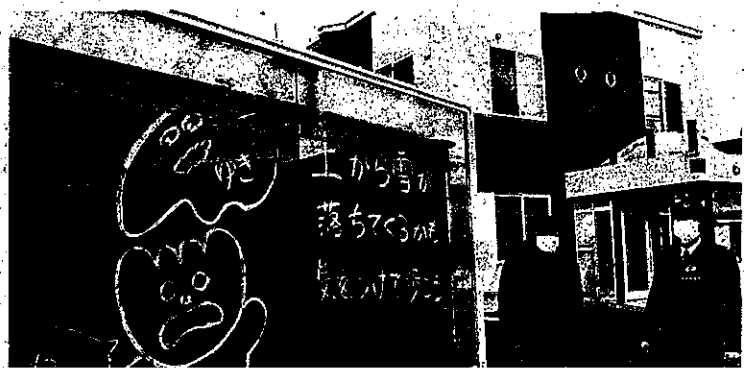 ゆき
上から雪が
落ちてくるかも
気をつけて